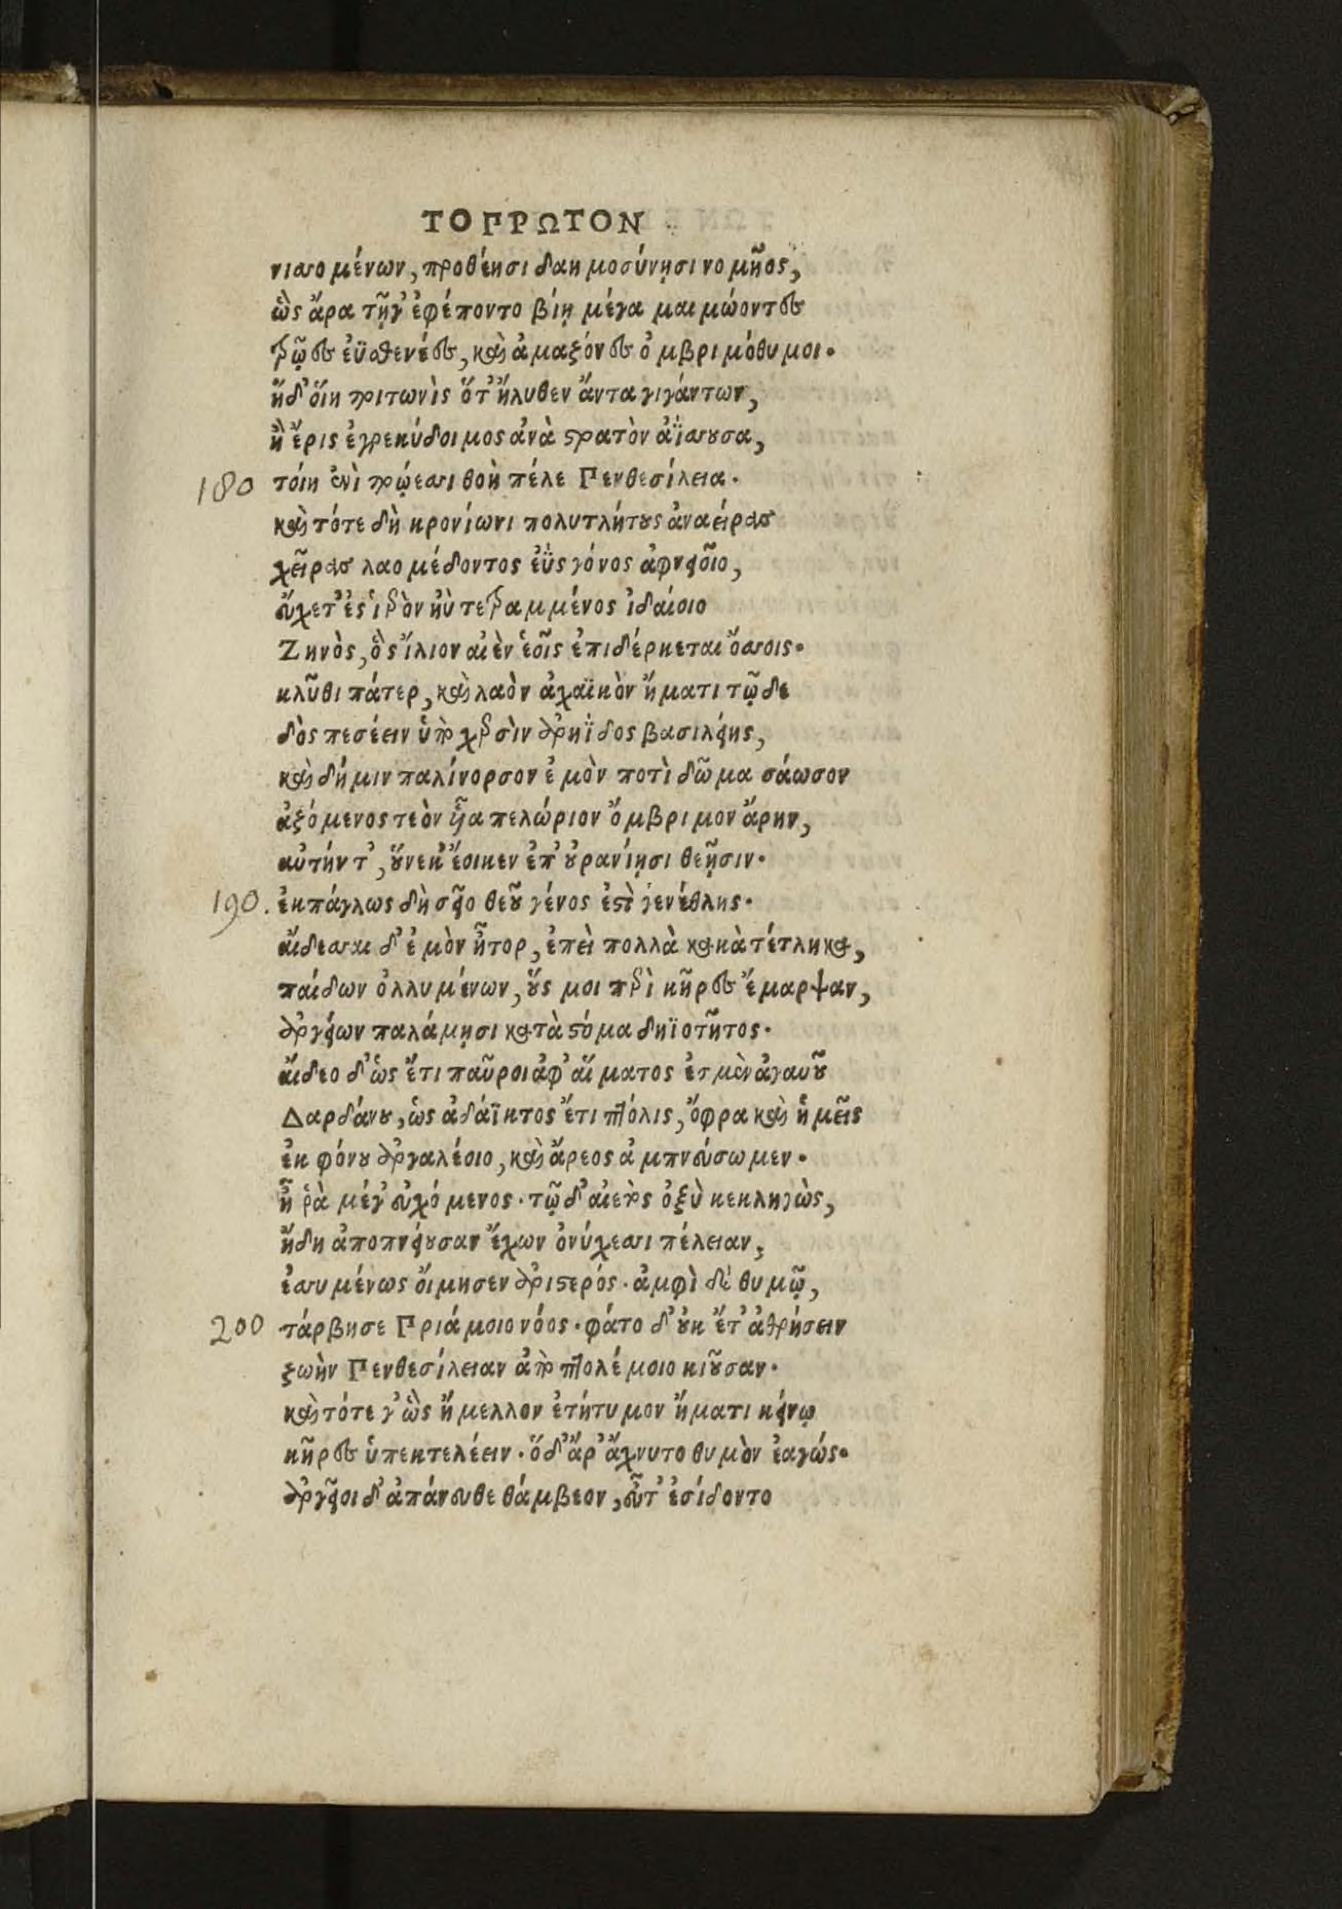 ΤΟ ΠΡΩΤΟΝ
νισσομένων, προθέησι δαημοσύνῃσι νομῆος,
ὣς ἄρα τῇγ' ἐφέποντο βίῃ μέγα μαιμώοντες
τρῶες ἐϋσθενέες, καὶ ἀμαζόνες ὀμβριμόθυμοι·
ἡ δ' ὅιη τριτωνὶς ὅτ' ἤλυθεν ἄντα γιγάντων,
ἢ ἔρις ἐγρεκύδοιμος ἀνὰ στρατὸν ἀΐσσουσα,
180 τόιη ἐνὶ τρώεσσι θοὴ πέλε Πενθεσίλεια·
καὶ τότε δὴ κρονίωνι πολυτλήτους ἀναείρας
χεῖρας λαομέδοντος ἐΰς γόνος ἀφνειοῖο,
εὔχετ' ἐς ἱερὸν ηὺ τετραμμένος ἰδαίοιο
Ζηνὸς, ὃς ἴλιον αἰὲν ἑοῖς ἐπιδέρκεται ὄσσοις·
κλῦθι πάτερ, καὶ λαὸν ἀχαϊκὸν ἤματι τῷδε
δὸς πεσέειν ὑπὸ χερσὶν ἀρηϊδος βασιλείης,
καὶ δή μιν παλίνορσον ἐμὸν ποτὶ δῶμα σάωσον
ἁζόμενος τεὸν ἷα πελώριον ὄμβριμον ἄρην,
αὐτήν τ', οὕνεκ' ἔοικεν ἐπ' οὐρανίῃσι θεῇσιν·
190. ἐκπάγλως δὴ σεῖο θεοῦ γένος ἐστὶ γενέθλης·
αἴδεσσαι δ' ἐμὸν ἦτορ, ἐπεὶ πολλὰ κακὰ τέτληκα,
παίδων ὀλλυμένων, οὕς μοι περὶ κῆρες ἔμαρψαν,
ἀργείων παλάμῃσι κατὰ στόμα δηϊοτῆτος·
αἴδεο δ' ὡς ἔτι παῦροι ἀφ' αἵματος ἐσμὲν ἀγαυοῦ
Δαρδάνου, ὡς ἀδάϊκτος ἔτι πτόλις, ὄφρα καὶ ἡμεῖς
ἐκ φόνου ἀργαλέοιο, καὶ ἄρεος ἀμπνεύσωμεν·
ἦ ῥὰ μέγ' εὐχόμενος· τῷ δ' αἰετὸς ὀξὺ κεκληγὼς,
ἤδη ἀποπνείουσαν ἔχων ὀνύχεσσι πέλειαν,
ἐσσυμένως οἴμησεν ἀριστερός· ἀμφὶ δὲ θυμῷ,
200 τάρβησε Πριάμοιο νόος· φάτο δ' οὐκ ἔτ' ἀθρήσειν
ζωὴν Πενθεσίλειαν ἀπὸ πτολέμοιο κιοῦσαν·
καὶ τότε γ' ὣς ἤμελλον ἐτήτυμον ἤματι κείνῳ
κῆρες ὑπεκτελέειν· ὅδ' ἄρ' ἄχνυτο θυμὸν ἐαγώς·
ἀργεῖοι δ' ἀπάνευθε θάμβεον, εὖτ' ἐσίδοντο